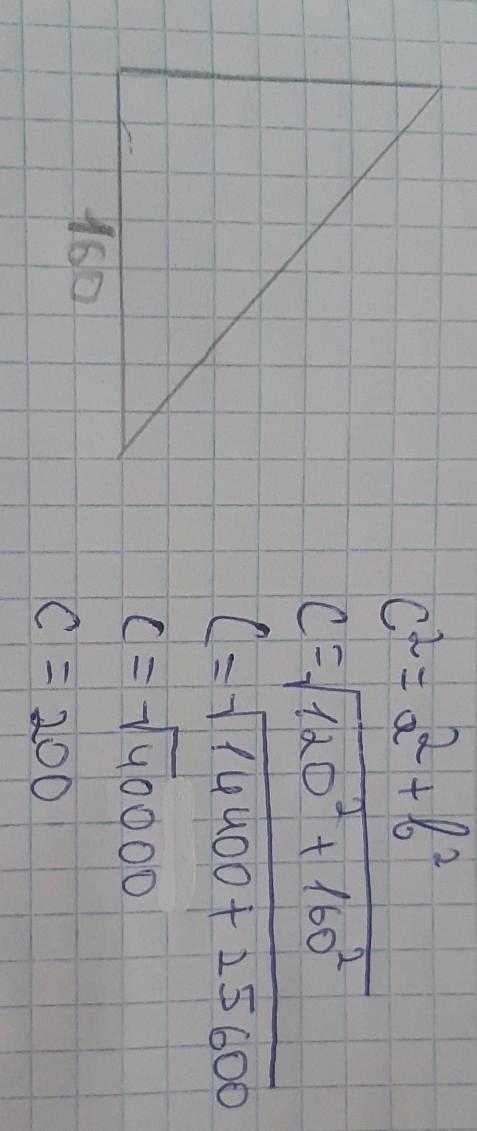 160
c² = a² + b²
c = √120² + 160²
c = √14400 + 25600
c = √40000
c = 200